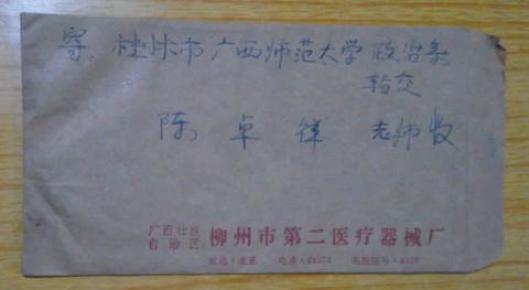 寄 桂林市广西师范大学政治系
转交
陈卓祥 老师收
广西壮族
自治区
柳州市第二医疗器械厂